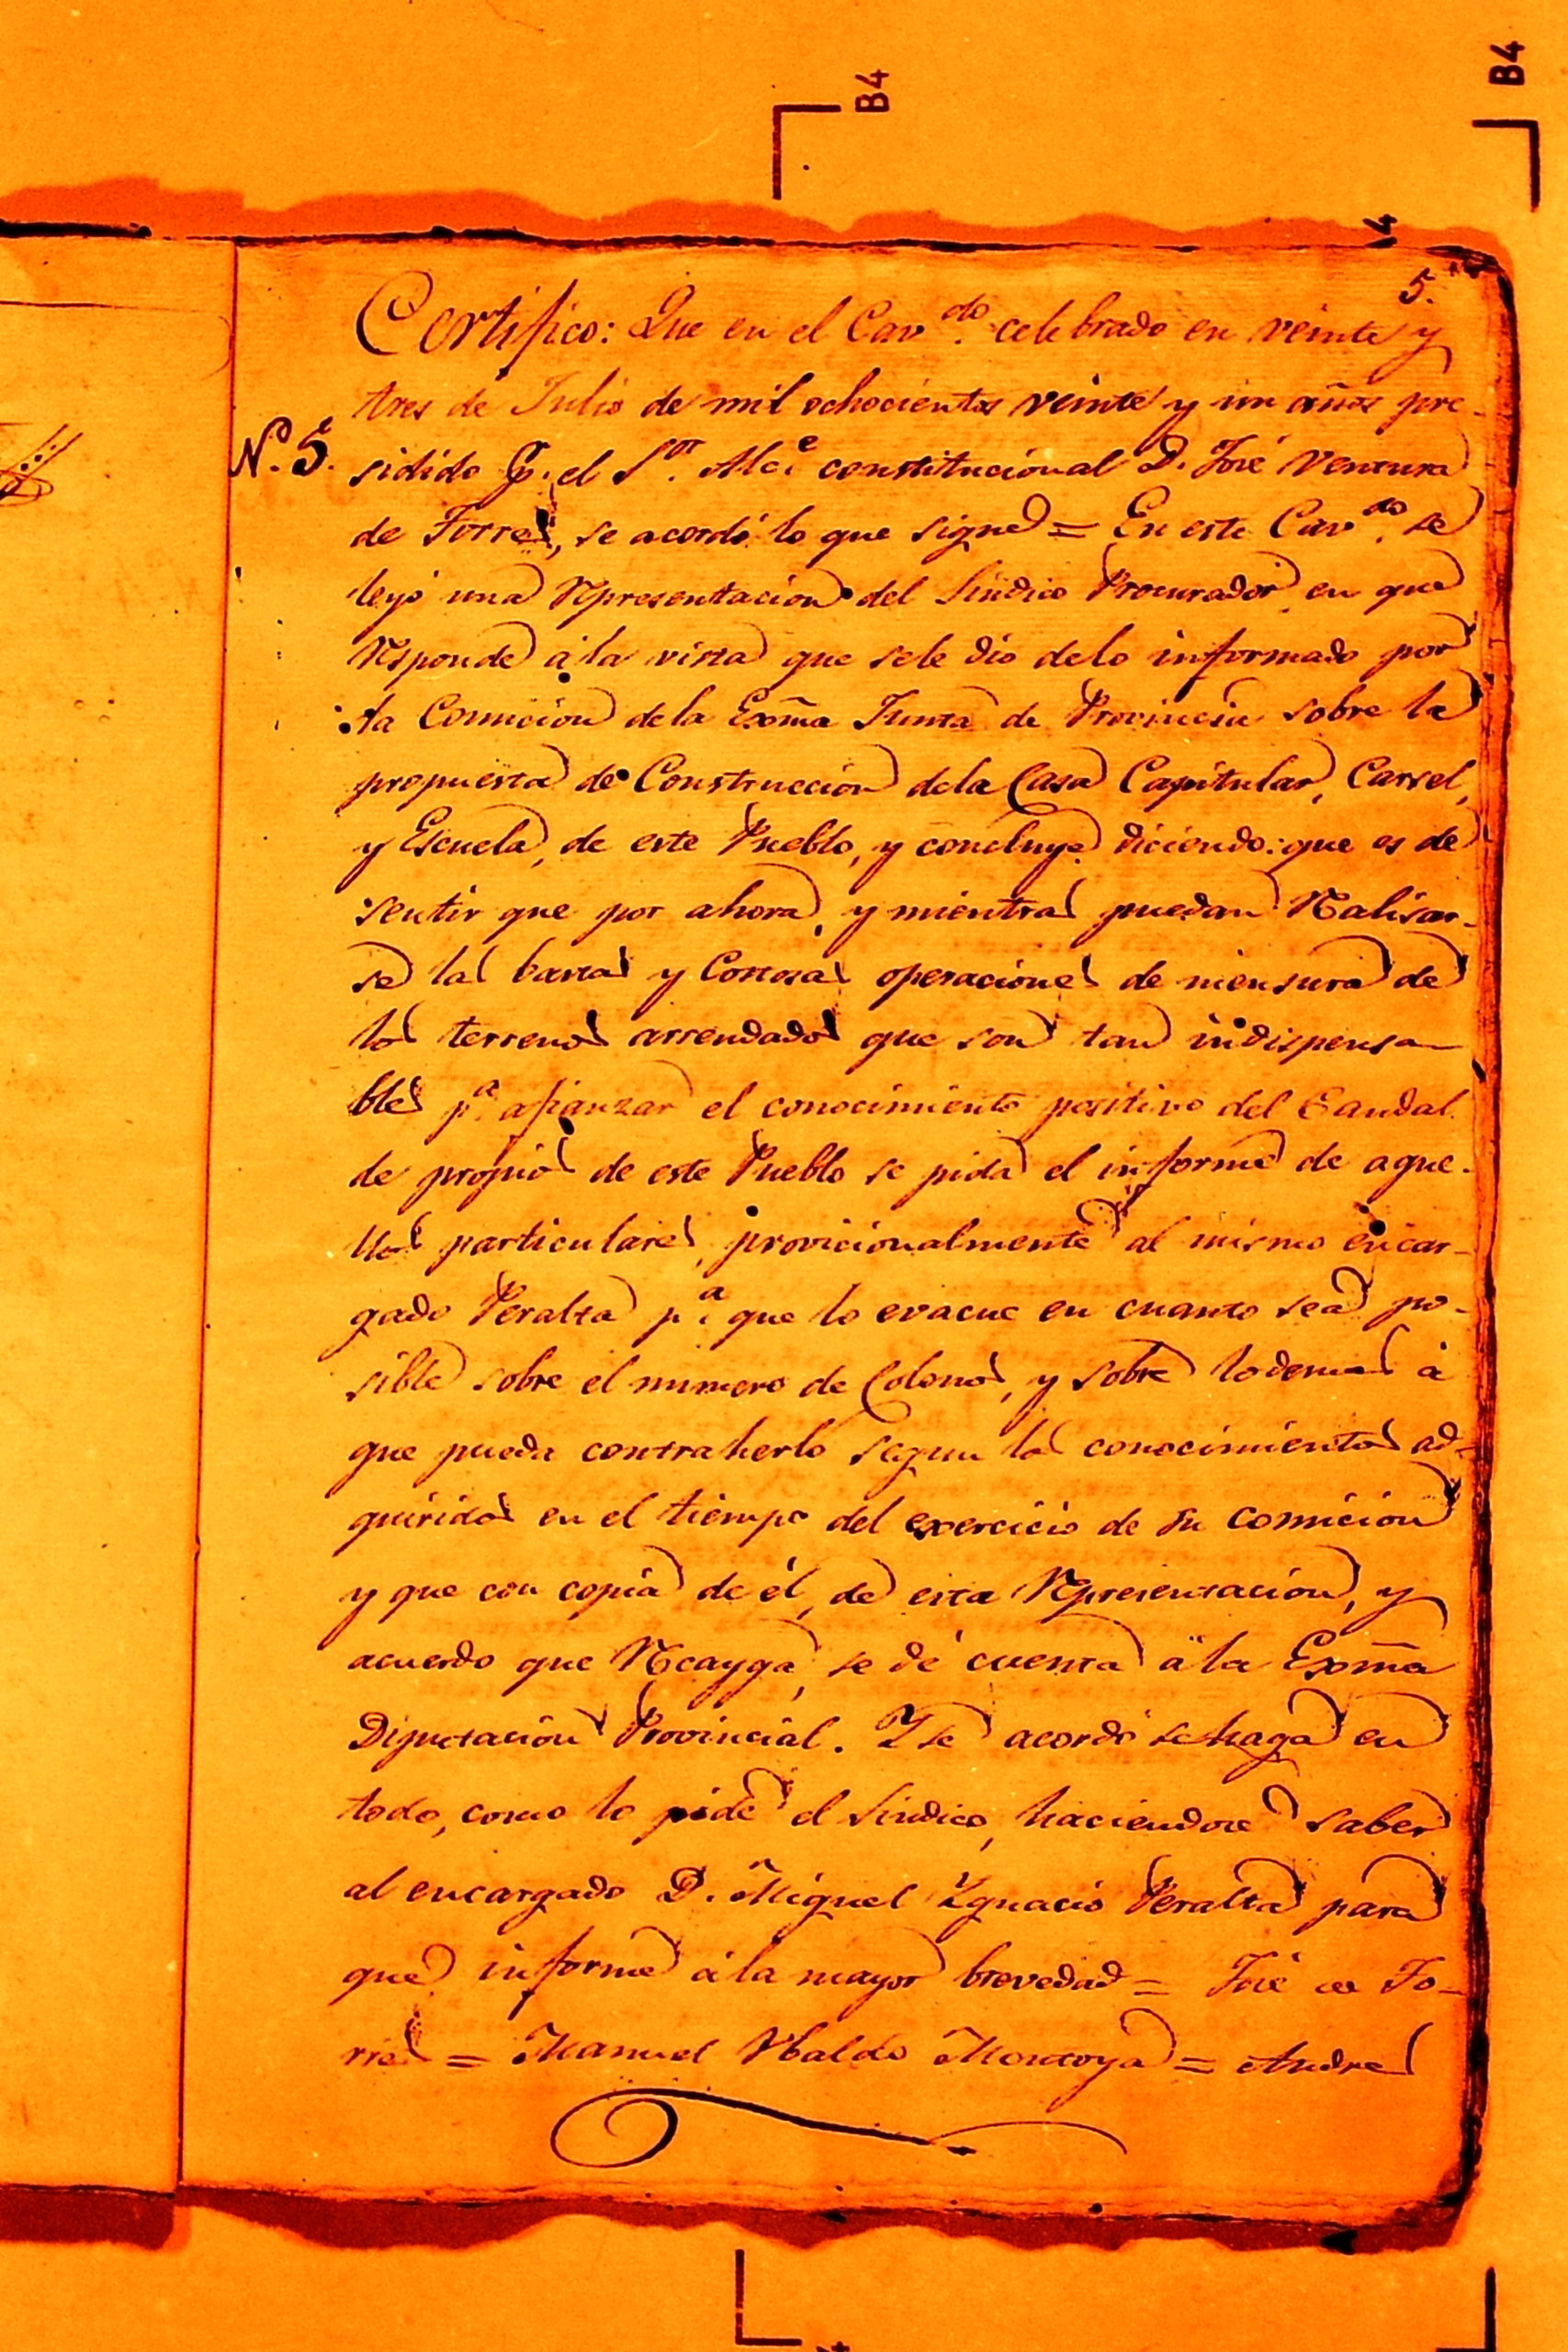 B4
B4
4
5.
Certifico: Que en el Cav.do celebrado en veinte y
tres de Julio de mil ochocientos veinte y un años pre-
N.º 5.
sidido p.r el S.or Alc.e constitucional D. José Ventura
de Torres, se acordó lo que sigue = En este Cav.do se
leyó una Representacion del Sindico Procurador en que
Responde á la vista que sele dio delo informado por
la Comicion dela Exma Junta de Provincia sobre la
propuesta de Construccion dela Casa Capitular, Carsel,
y Escuela, de este Pueblo, y concluye diciendo: que es de
sentir que por ahora, y mientras puedan Realisar-
se las bastas y Costosas operaciones de mensura de
los terrenos arrendados que son tan indispensa-
bles p.a afianzar el conocimiento positivo del Caudal
de propios de este Pueblo se pida el informe de aque-
llos particulares, provicionalmente al mismo encar-
gado Peralta p.a que lo evacue en cuanto sea po-
sible sobre el numero de Colonos, y sobre lodemas á
que pueda contraherlo segun los conocimientos ad-
quiridos en el tiempo del exercicio de su comicion
y que con copia de él, de esta Representacion, y
acuerdo que Recayga, se dé cuenta á la Exma
Diputacion Provincial. Y se acordó se haga en
todo, como lo pide el Sindico, haciendose saber
al encargado D. Miguel Ygnacio Peralta para
que informe á la mayor brevedad = José de To-
rres = Manuel Ubaldo Montoya = Andres